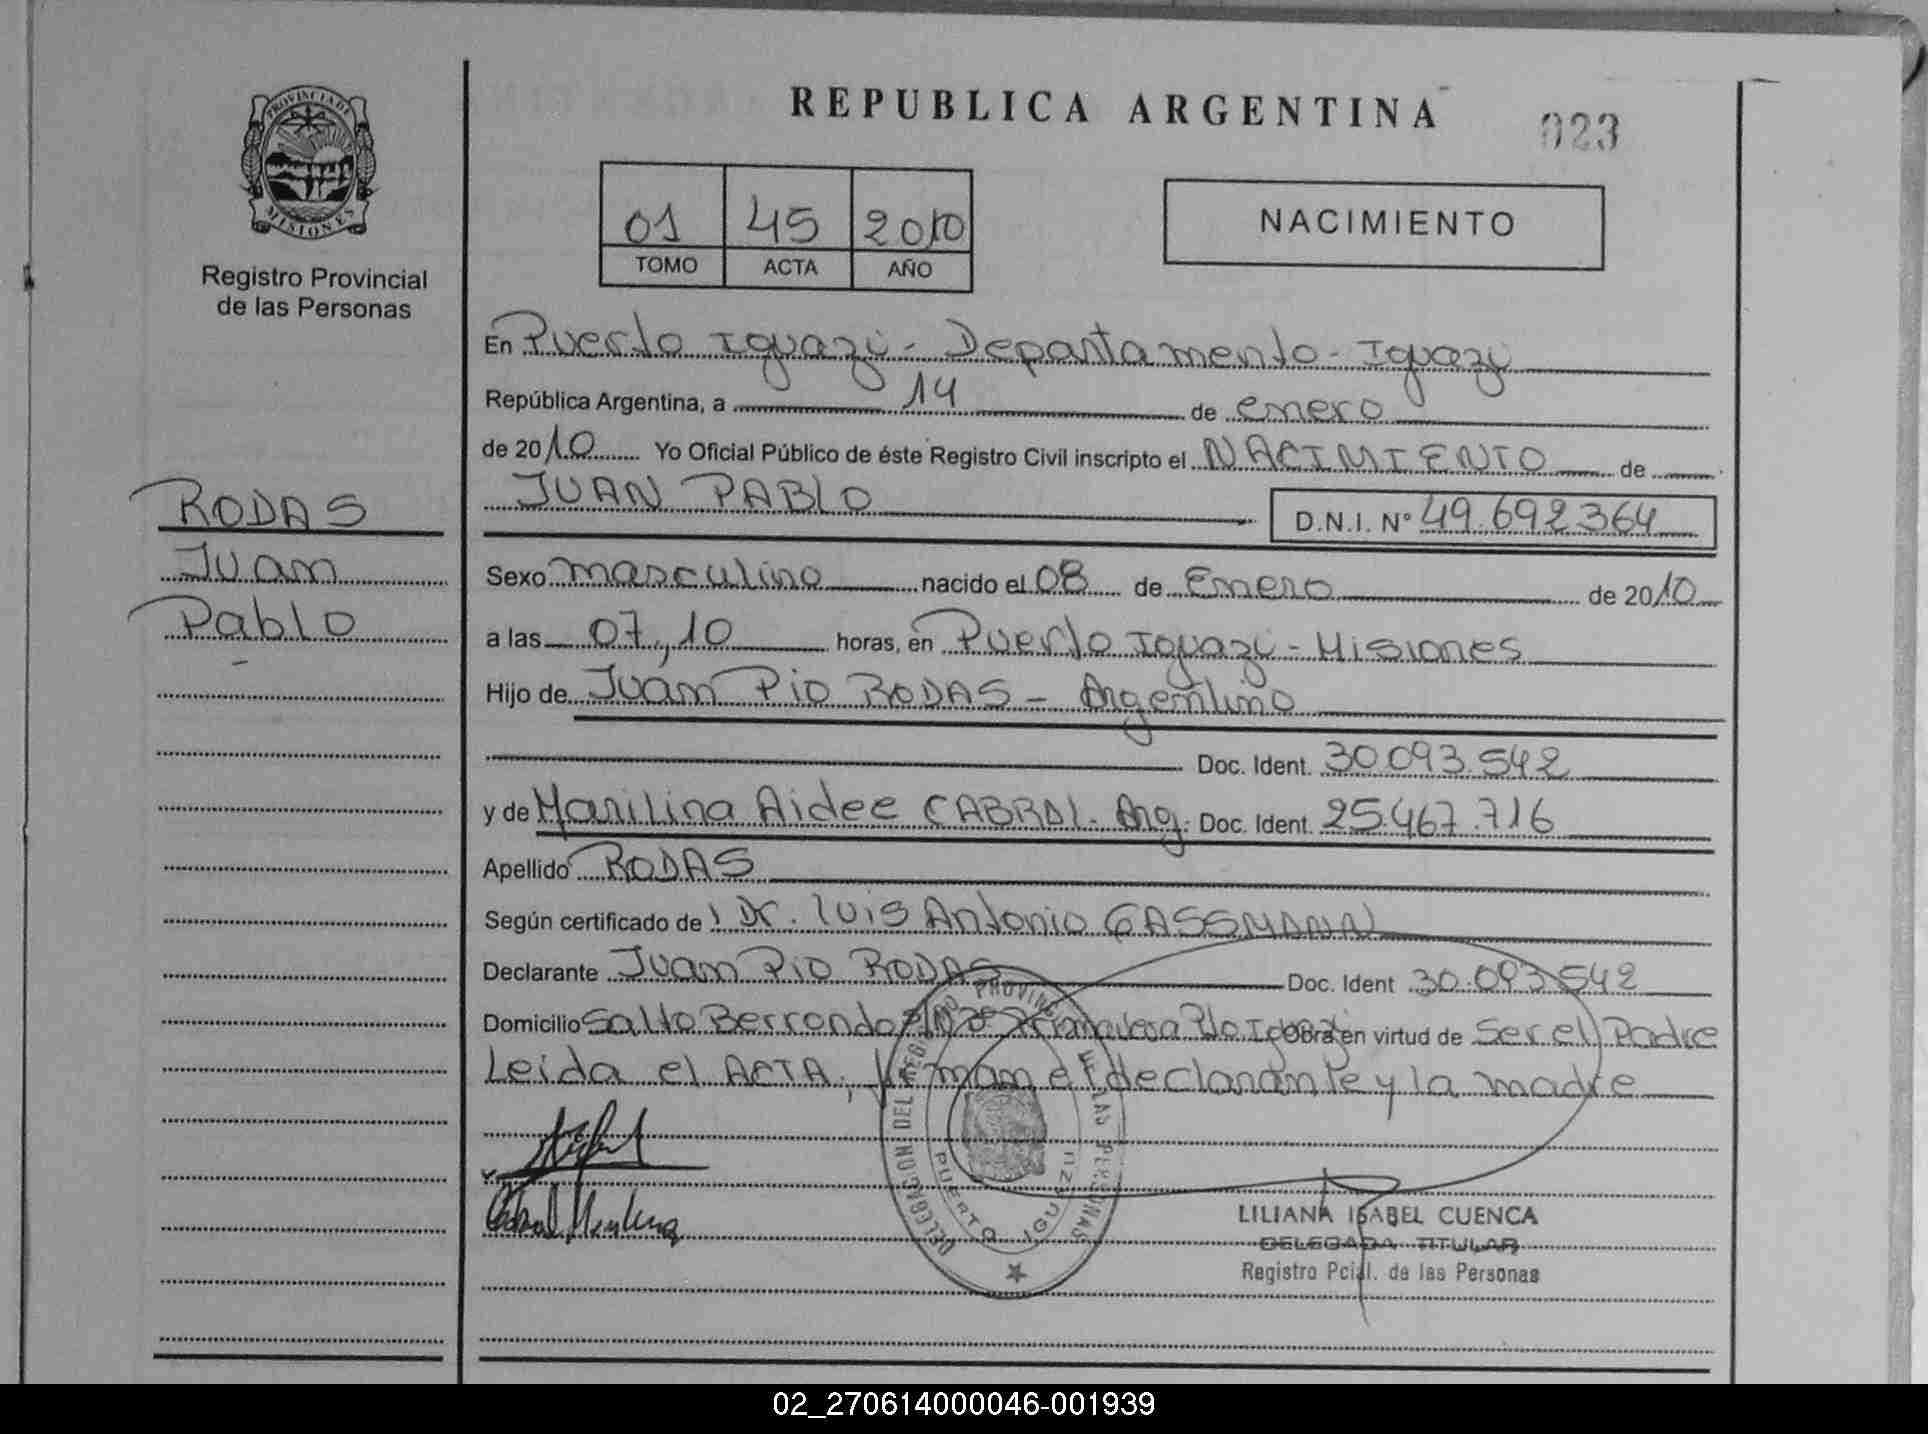 REPUBLICA ARGENTINA
023
PROVINCIA DE
MISIONES
Registro Provincial
de las Personas
01 45 2010
TOMO ACTA AÑO
NACIMIENTO
En Puerto Iguazú - Departamento - Iguazú
República Argentina, a 14 de enero
de 2010 Yo Oficial Público de éste Registro Civil inscripto el NACIMIENTO de
JUAN PABLO D.N.I. N° 49.692364
RODAS
Juan
Pablo
Sexo masculino nacido el 08 de Enero de 2010
a las 07,10 horas, en Puerto Iguazú - Misiones
Hijo de Juan Pio RODAS - Argentino
Doc. Ident. 30.093.542
y de Marilina Aidee CABRAL. Arg. Doc. Ident. 25.467.716
Apellido RODAS
Según certificado de Dr. Luis Antonio GASSMANN
Declarante Juan Pio RODAS Doc. Ident 30.093.542
Domicilio Salto Berrondo Primavera Pto Iguazú Obra en virtud de Ser el Padre
Leida el ACTA, firman el declarante y la madre
DELEGACION DEL REGISTRO PROVINCIAL DE LAS PERSONAS
PUERTO IGUAZU
Cabral Marilina
LILIANA ISABEL CUENCA
DELEGADA TITULAR
Registro Pcial. de las Personas
02_270614000046-001939